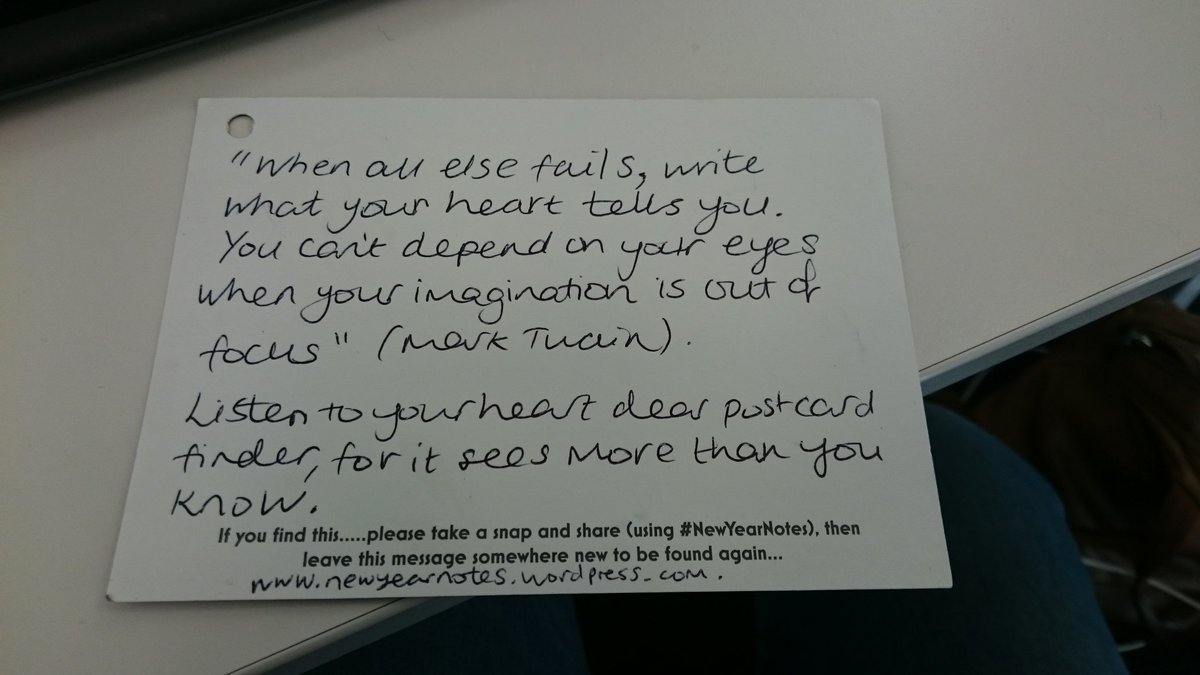 "When all else fails, write
what your heart tells you.
You can't depend on your eyes
when your imagination is out of
focus" (Mark Twain).
Listen to your heart dear postcard
finder, for it sees more than you
know.
If you find this.....please take a snap and share (using #NewYearNotes), then
leave this message somewhere new to be found again...
www.newyearnotes.wordpress.com.